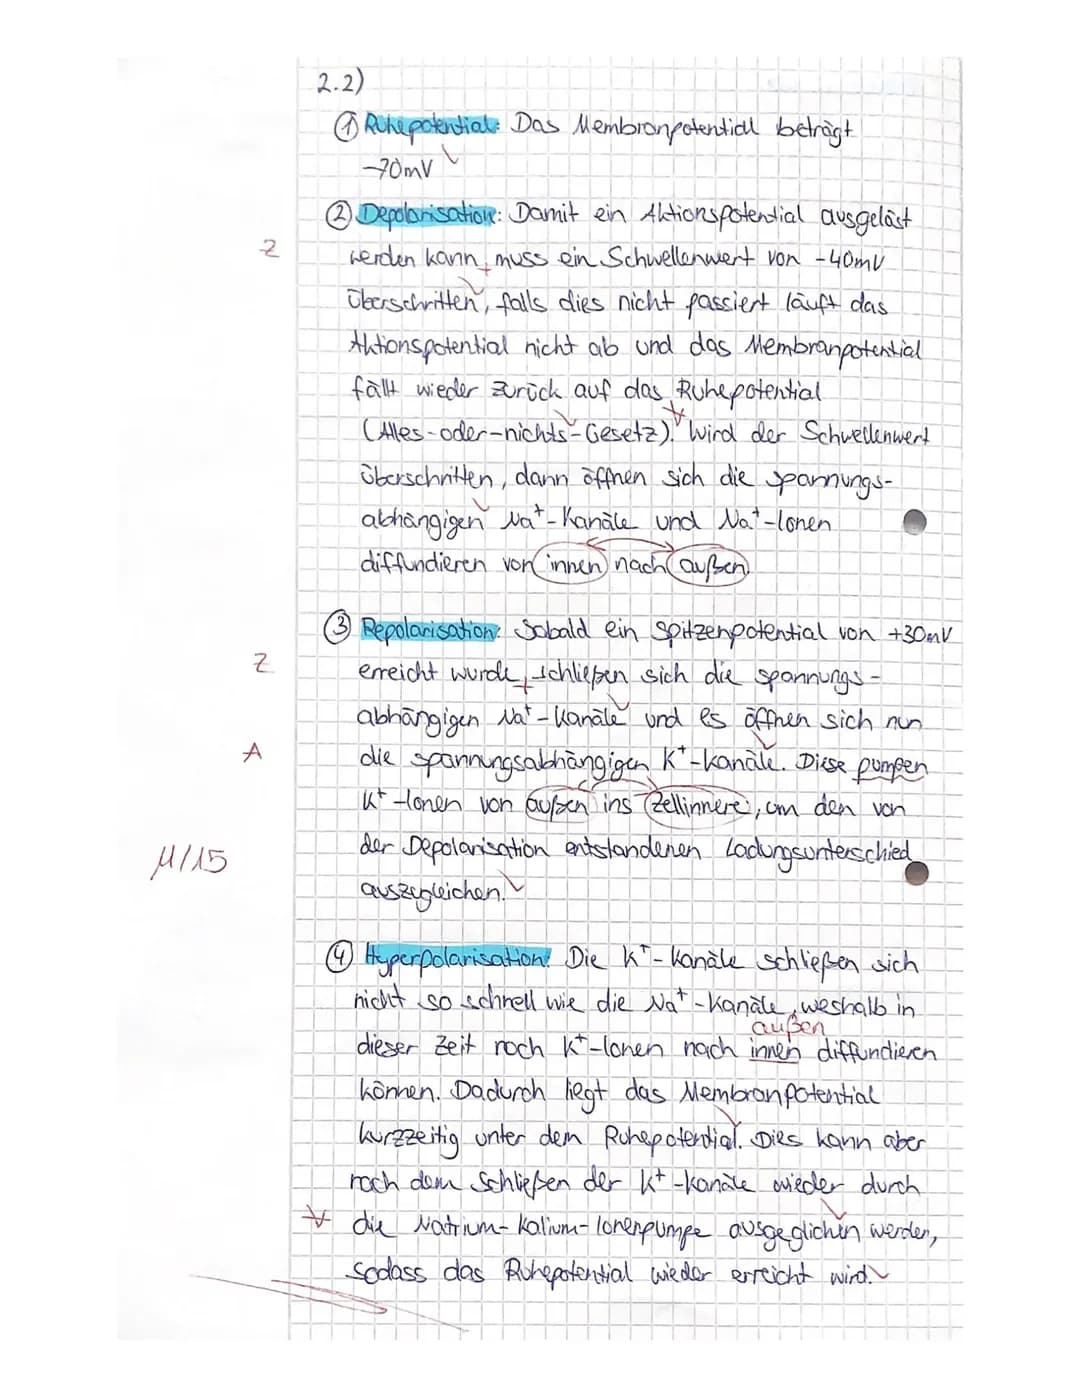 2.2)
① Ruhepotential: Das Membranpotential beträgt
-70mV
② Depolarisation: Damit ein Aktionspotential ausgelöst
Z
werden kann, muss ein Schwellenwert von -40mV
überschritten, falls dies nicht passiert läuft das
Aktionspotential nicht ab und das Membranpotential
fällt wieder zurück auf das Ruhepotential
(Alles-oder-nichts-Gesetz). Wird der Schwellenwert
überschritten, dann öffnen sich die spannungs-
abhängigen Na⁺-Kanäle und Na⁺-Ionen
diffundieren von innen nach außen.
③ Repolarisation: Sobald ein Spitzenpotential von +30mV
Z
erreicht wurde, schließen sich die spannungs-
abhängigen Na⁺-Kanäle und es öffnen sich nun
A
die spannungsabhängigen K⁺-Kanäle. Diese pumpen
K⁺-Ionen von außen ins Zellinnere, um den von
der Depolarisation entstandenen Ladungsunterschied
11/15
auszugleichen.
④ Hyperpolarisation: Die K⁺-Kanäle schließen sich
nicht so schnell wie die Na⁺-Kanäle, weshalb in
außen
dieser Zeit noch K⁺-Ionen nach innen diffundieren
können. Dadurch liegt das Membranpotential
kurzzeitig unter dem Ruhepotential. Dies kann aber
nach dem Schließen der K⁺-Kanäle wieder durch
die Natrium-Kalium-Ionenpumpe ausgeglichen werden,
sodass das Ruhepotential wieder erreicht wird.